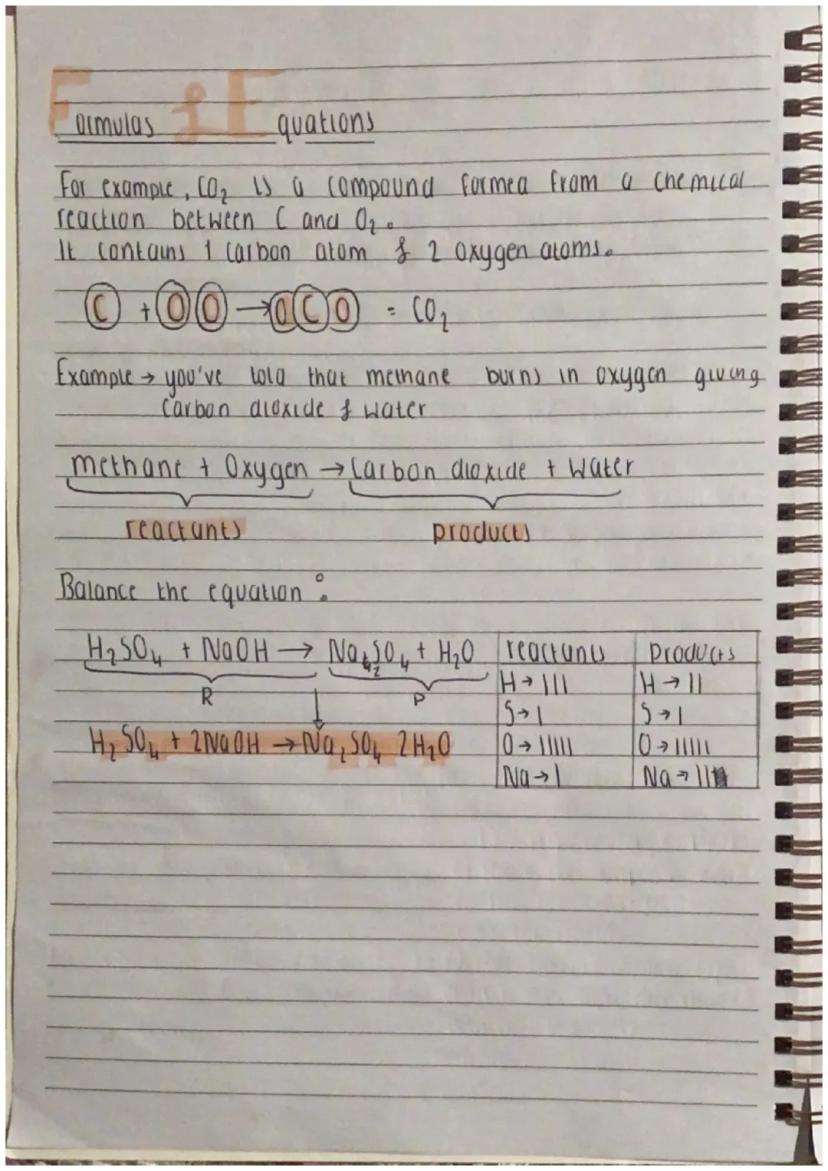 Formulas & Equations
For example, CO₂ is a compound formed from a chemical
reaction between C and O₂.
It contains 1 carbon atom & 2 oxygen atoms.
C + O O → O C O = CO₂
Example → you've told that methane burns in oxygen giving
carbon dioxide & water
methane + Oxygen → Carbon dioxide + Water
reactants products
Balance the equation :
H₂SO₄ + NaOH → Na₂SO₄ + H₂O
R P
H₂SO₄ + 2NaOH → Na₂SO₄ 2H₂O
reactants Products
H → III H → II
S → I S → I
O → IIIII O → IIIII
Na → I Na → II